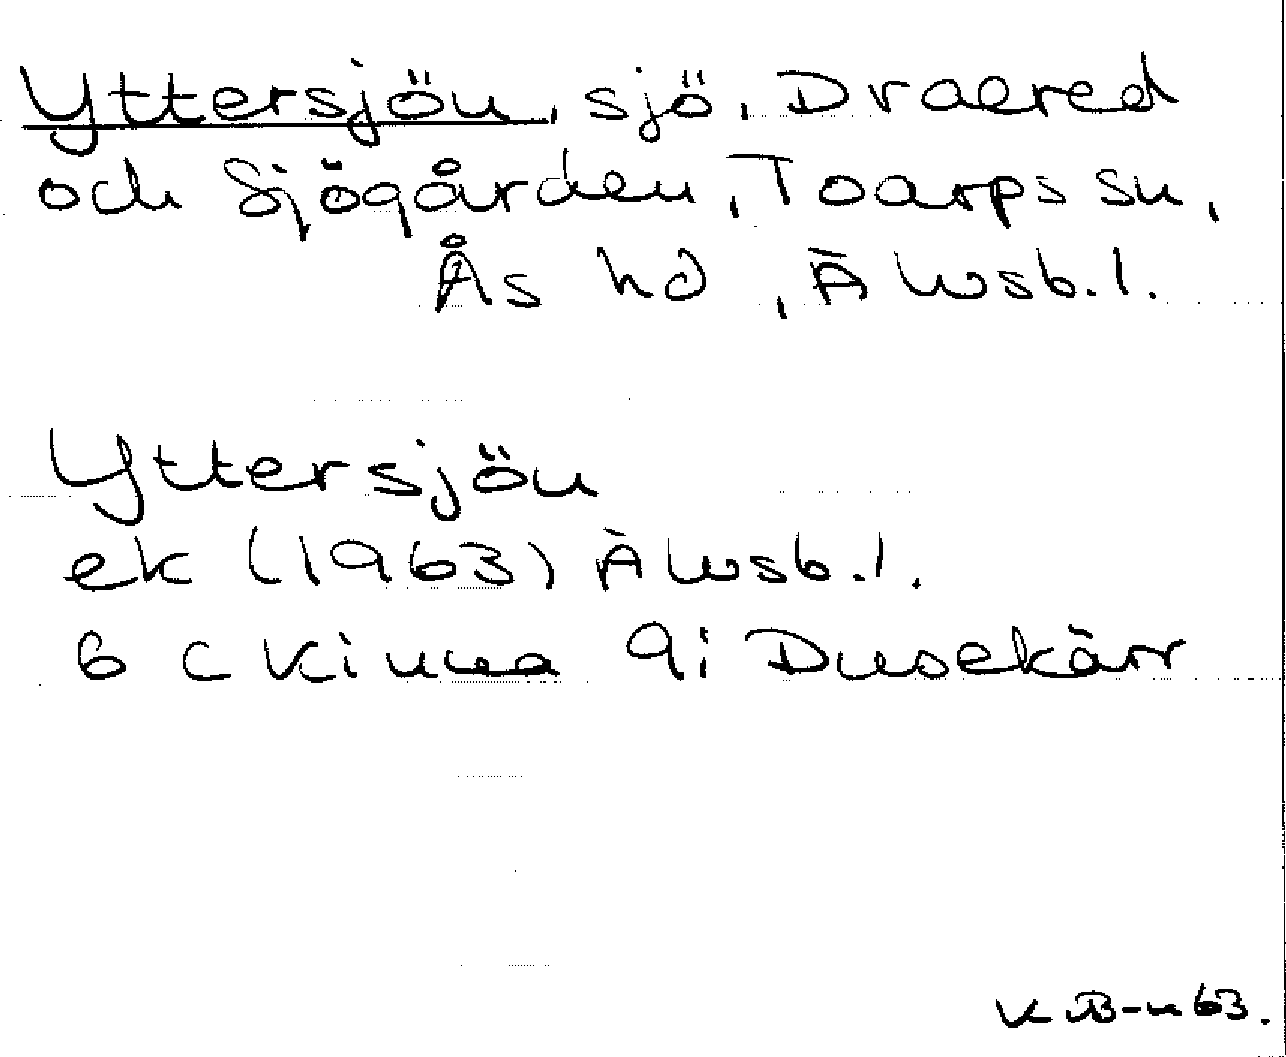 Yttersjön, sjö, Draered
och Sjögården, Toarps sn,
Ås hd, Älvsb.l.
Yttersjön
ek (1963) Älvsb.l.
6 C Kinna 9i Dusekärr
K B-n 63.